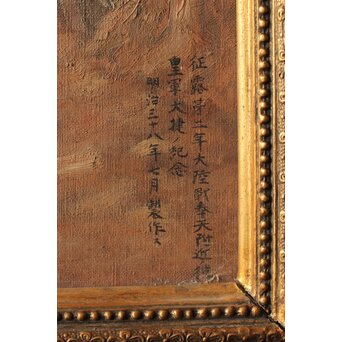 征露第二年大陸戰奉天附近
皇軍大捷ノ紀念
明治三十八年七月製作ス